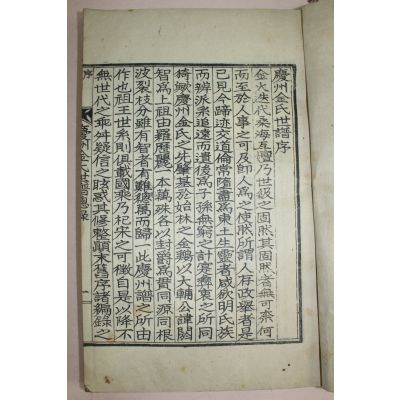 慶州金氏世譜序
金火迭代桑海互變乃世級之固然其固然者無可奈何
而至於人事之可及即人爲之使然所謂人存政擧者是
已見今蹄迹交道倫常隳盡爲東土生靈者咸欲明氏族
而辨派系追遠而遺後爲子孫無窮之計寔彝衷之所同
猗歟慶州金氏之先肇基於始林之金鷄以大輔公諱閼
智爲上祖由羅歷麗一本萬殊各以封爵爲貫同源同根
波裂枝分雖有智者有難總萬而歸一此慶州譜之所由
作也祖王世系則俱載國乘乃杞宋之可徵自是以降不
無世代之乖舛疑信之眩惑其修整顚末舊序諸編錄之
序
慶州金氏世譜
一